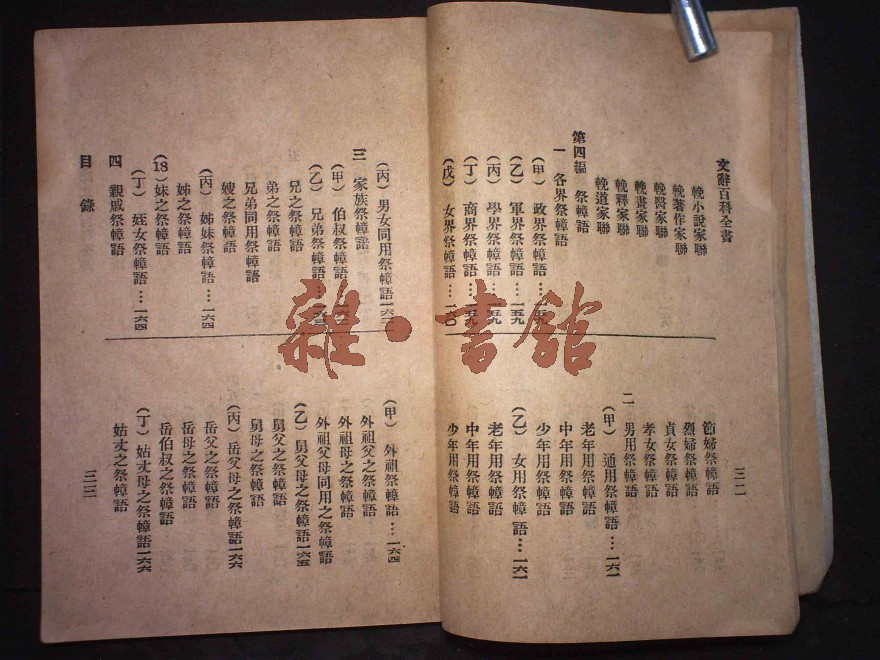 文辭百科全書
輓小說家聯
輓著作家聯
輓醫家聯
輓畫家聯
輓釋家聯
輓道家聯
第四編 祭幛語
一 各界祭幛語
(甲)政界祭幛語…一五九
(乙)軍界祭幛語…一五九
(丙)學界祭幛語…一五九
(丁)商界祭幛語…一五九
(戊)女界祭幛語…一六〇
節婦祭幛語
烈婦祭幛語
貞女祭幛語
孝女祭幛語
二 男用祭幛語
(甲)通用祭幛語…一六一
老年用祭幛語
中年用祭幛語
少年用祭幛語
(乙)女用祭幛語…一六一
老年用祭幛語
中年用祭幛語
少年用祭幛語
三二
(丙)男女同用祭幛語
三 家族祭幛語
(甲)伯叔祭幛語
(乙)兄弟祭幛語
兄之祭幛語
弟之祭幛語
兄弟同用祭幛語
嫂之祭幛語
(丙)姊妹祭幛語…一六四
姊之祭幛語
(18)妹之祭幛語
(丁)姪女祭幛語…一六四
四 親戚祭幛語
目錄
(甲)外祖祭幛語…一六四
外祖父之祭幛語
外祖母之祭幛語
外祖父母同用之祭幛語
(乙)舅父母之祭幛語一六五
舅父之祭幛語
舅母之祭幛語
(丙)岳父母之祭幛語一六六
岳父之祭幛語
岳母之祭幛語
岳伯叔之祭幛語
(丁)姑丈母之祭幛語一六六
姑丈之祭幛語
三三
雜·書館